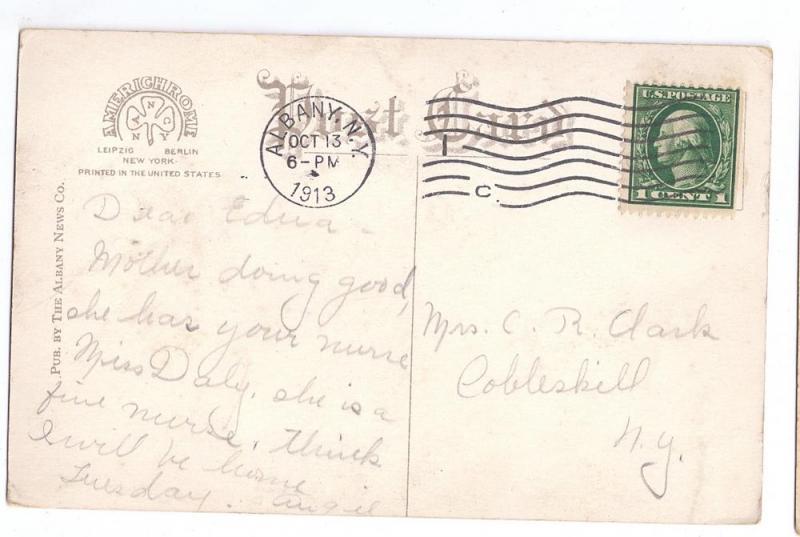 AMERICHROME
A N C N Y
LEIPZIG BERLIN
NEW YORK
PRINTED IN THE UNITED STATES
PUB. BY THE ALBANY NEWS CO.
Post Card
ALBANY, N.Y.
OCT 13
6-PM
1913
1
C
U.S. POSTAGE
1 CENT 1
Dear Edna -
Mother doing good,
she has your nurse
Miss Daly. she is a
fine nurse. think
I will be home
Tuesday. Angie
Mrs. C. R. Clark
Cobleskill
N.Y.